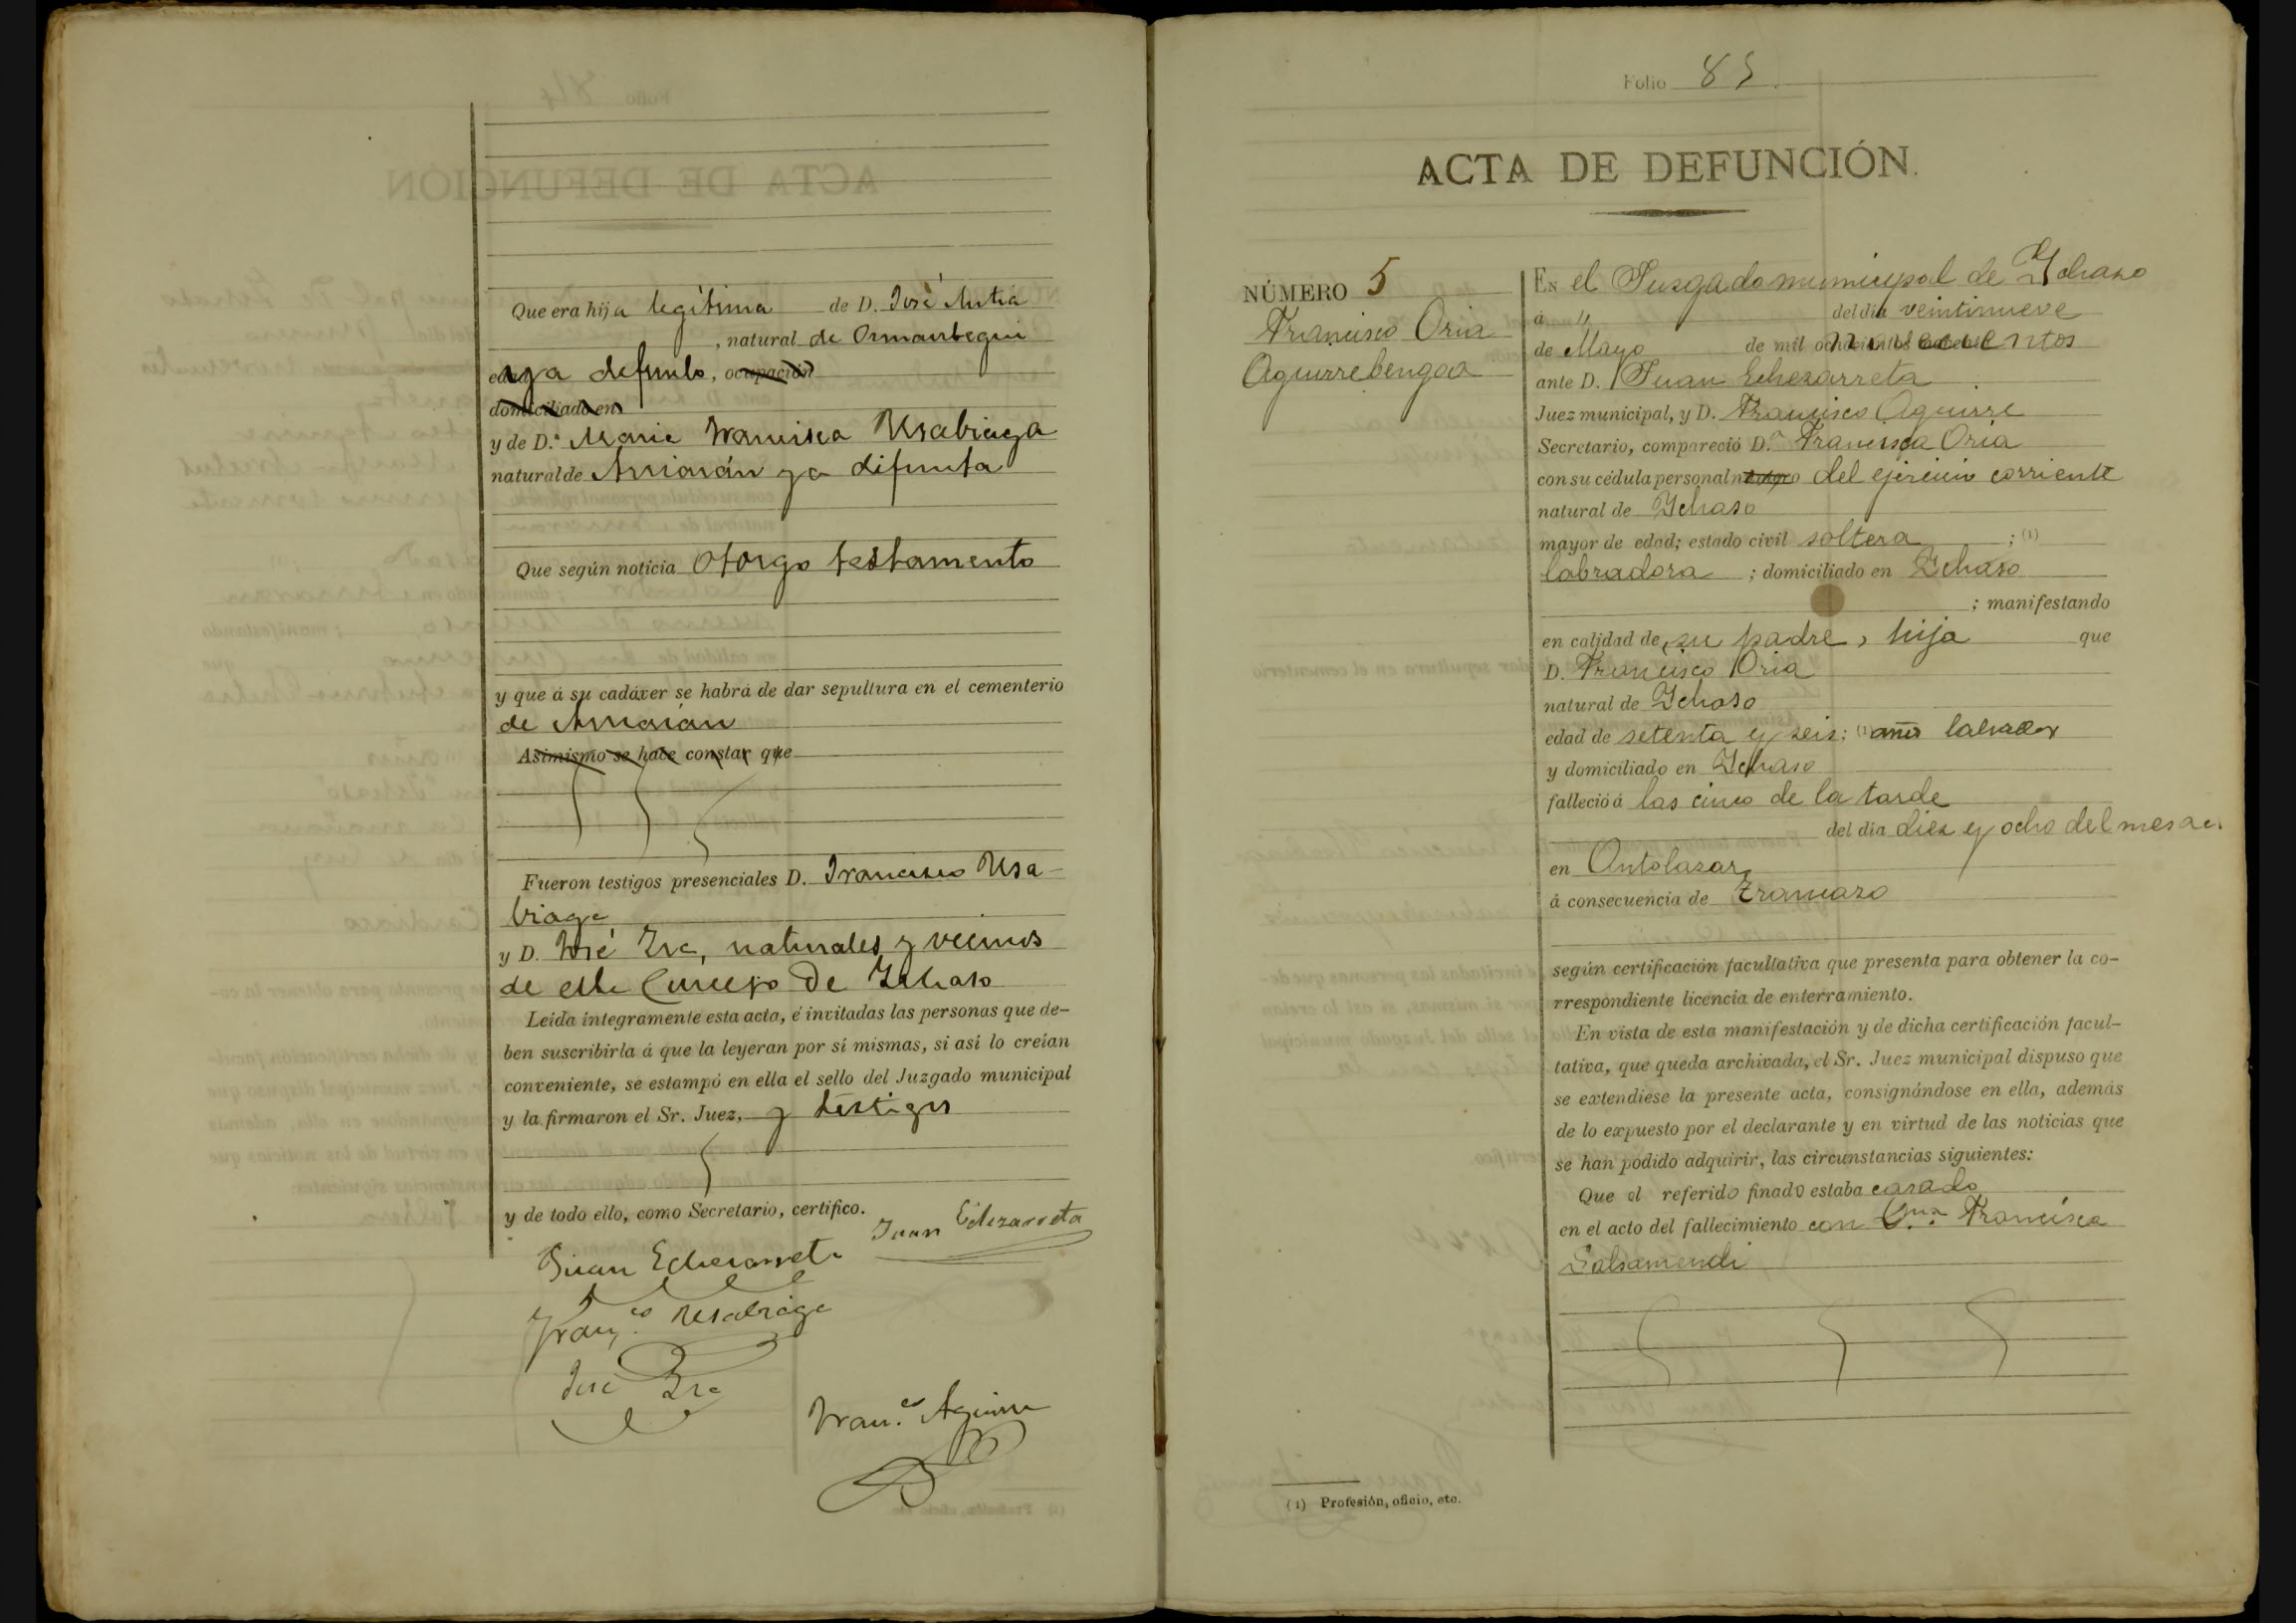 Que era hija legítima de D. José Antia
, natural de Ormaiztegui
ya defunto, ocupación
domiciliado en
y de D.ª Maria Francisca Usabiaga
natural de Amiarán ya difunta
Que según noticia otorgo testamento
y que á su cadáver se habrá de dar sepultura en el cementerio
de
Asimismo se hace constar que
Fueron testigos presenciales D. Francisco Usa-
biaga
y D. José, naturales y vecinos
de este Concejo de Ichaso
Leída íntegramente esta acta, é invitadas las personas que de-
ben suscribirla á que la leyeran por sí mismas, si así lo creían
conveniente, se estampó en ella el sello del Juzgado municipal
y la firmaron el Sr. Juez, y testigos
y de todo ello, como Secretario, certifico.
Juan Echezarreta
Juan Echezarreta
Fran.co Usabiaga
José
Fran.co Aguirre
Folio 85.
ACTA DE DEFUNCIÓN.
NÚMERO 5
Francisco Oria
Aguirrebengoa
EN el Juzgado municipal de Ichaso
á " del día veintinueve
de Mayo de mil novecientos
ante D. Juan Echezarreta
Juez municipal, y D. Francisco Aguirre
Secretario, compareció D.ª Francisca Oria
con su cédula personal número del ejercicio corriente
natural de Ichaso
mayor de edad; estado civil soltera ; (1)
labradora ; domiciliado en Ichaso
; manifestando
en calidad de su padre, hija que
D. Francisco Oria
natural de Ichaso
edad de setenta y seis; (1) años labrador
y domiciliado en Ichaso
falleció á las cinco de la tarde
del día diez y ocho del mes ac.
en Ontolazar
á consecuencia de
según certificación facultativa que presenta para obtener la co-
rrespondiente licencia de enterramiento.
En vista de esta manifestación y de dicha certificación facul-
tativa, que queda archivada, el Sr. Juez municipal dispuso que
se extendiese la presente acta, consignándose en ella, además
de lo expuesto por el declarante y en virtud de las noticias que
se han podido adquirir, las circunstancias siguientes:
Que el referido finado estaba casado
en el acto del fallecimiento con Francisca
Galsamendi
(1) Profesión, oficio, etc.